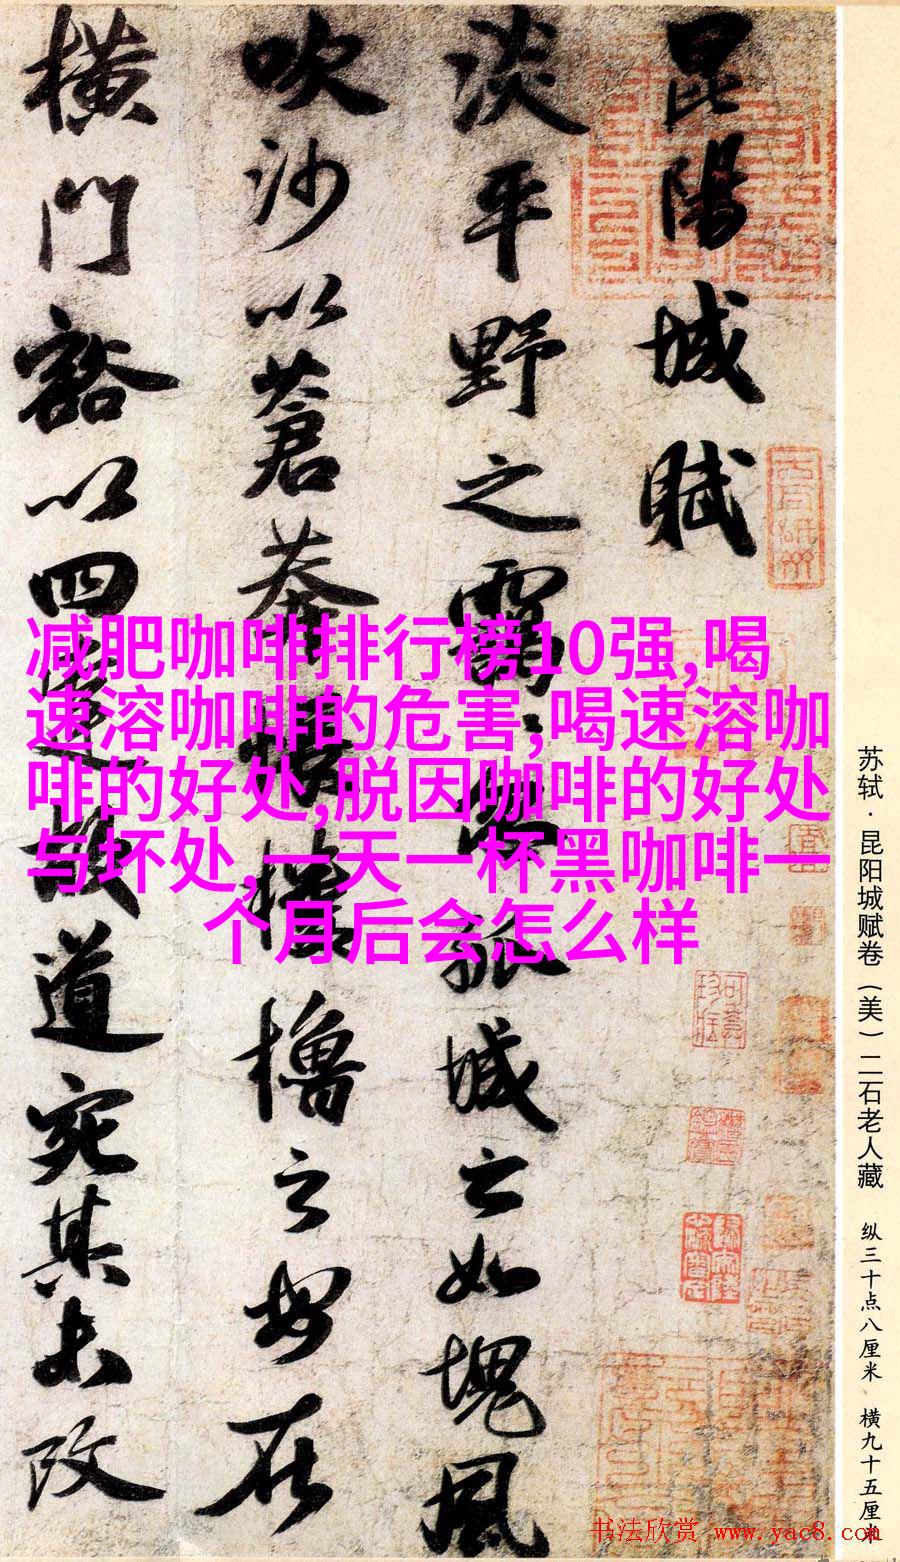 减肥咖啡排行榜10强,喝
速溶咖啡的危害,喝速溶咖
啡的好处,脱因咖啡的好处
与坏处,一天一杯黑咖啡一
个月后会怎么样
昆陽城賦
淡平野之靄〻忽孤城之如塊風
吹沙以蒼莽悵樓櫓之安在
橫門豁以四達故道宛其未改
苏轼·昆阳城赋卷(美)二石老人藏 纵三十点八厘米 横九十五厘米
书法欣赏 www.yac8.com